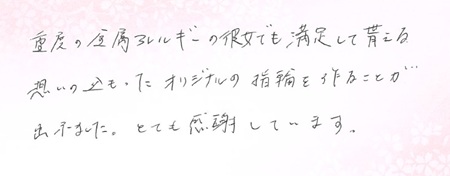 重度の金属アレルギーの彼女でも満足して貰える
想いの込もったオリジナルの指輪を作ることが
出来ました。とても感謝しています。